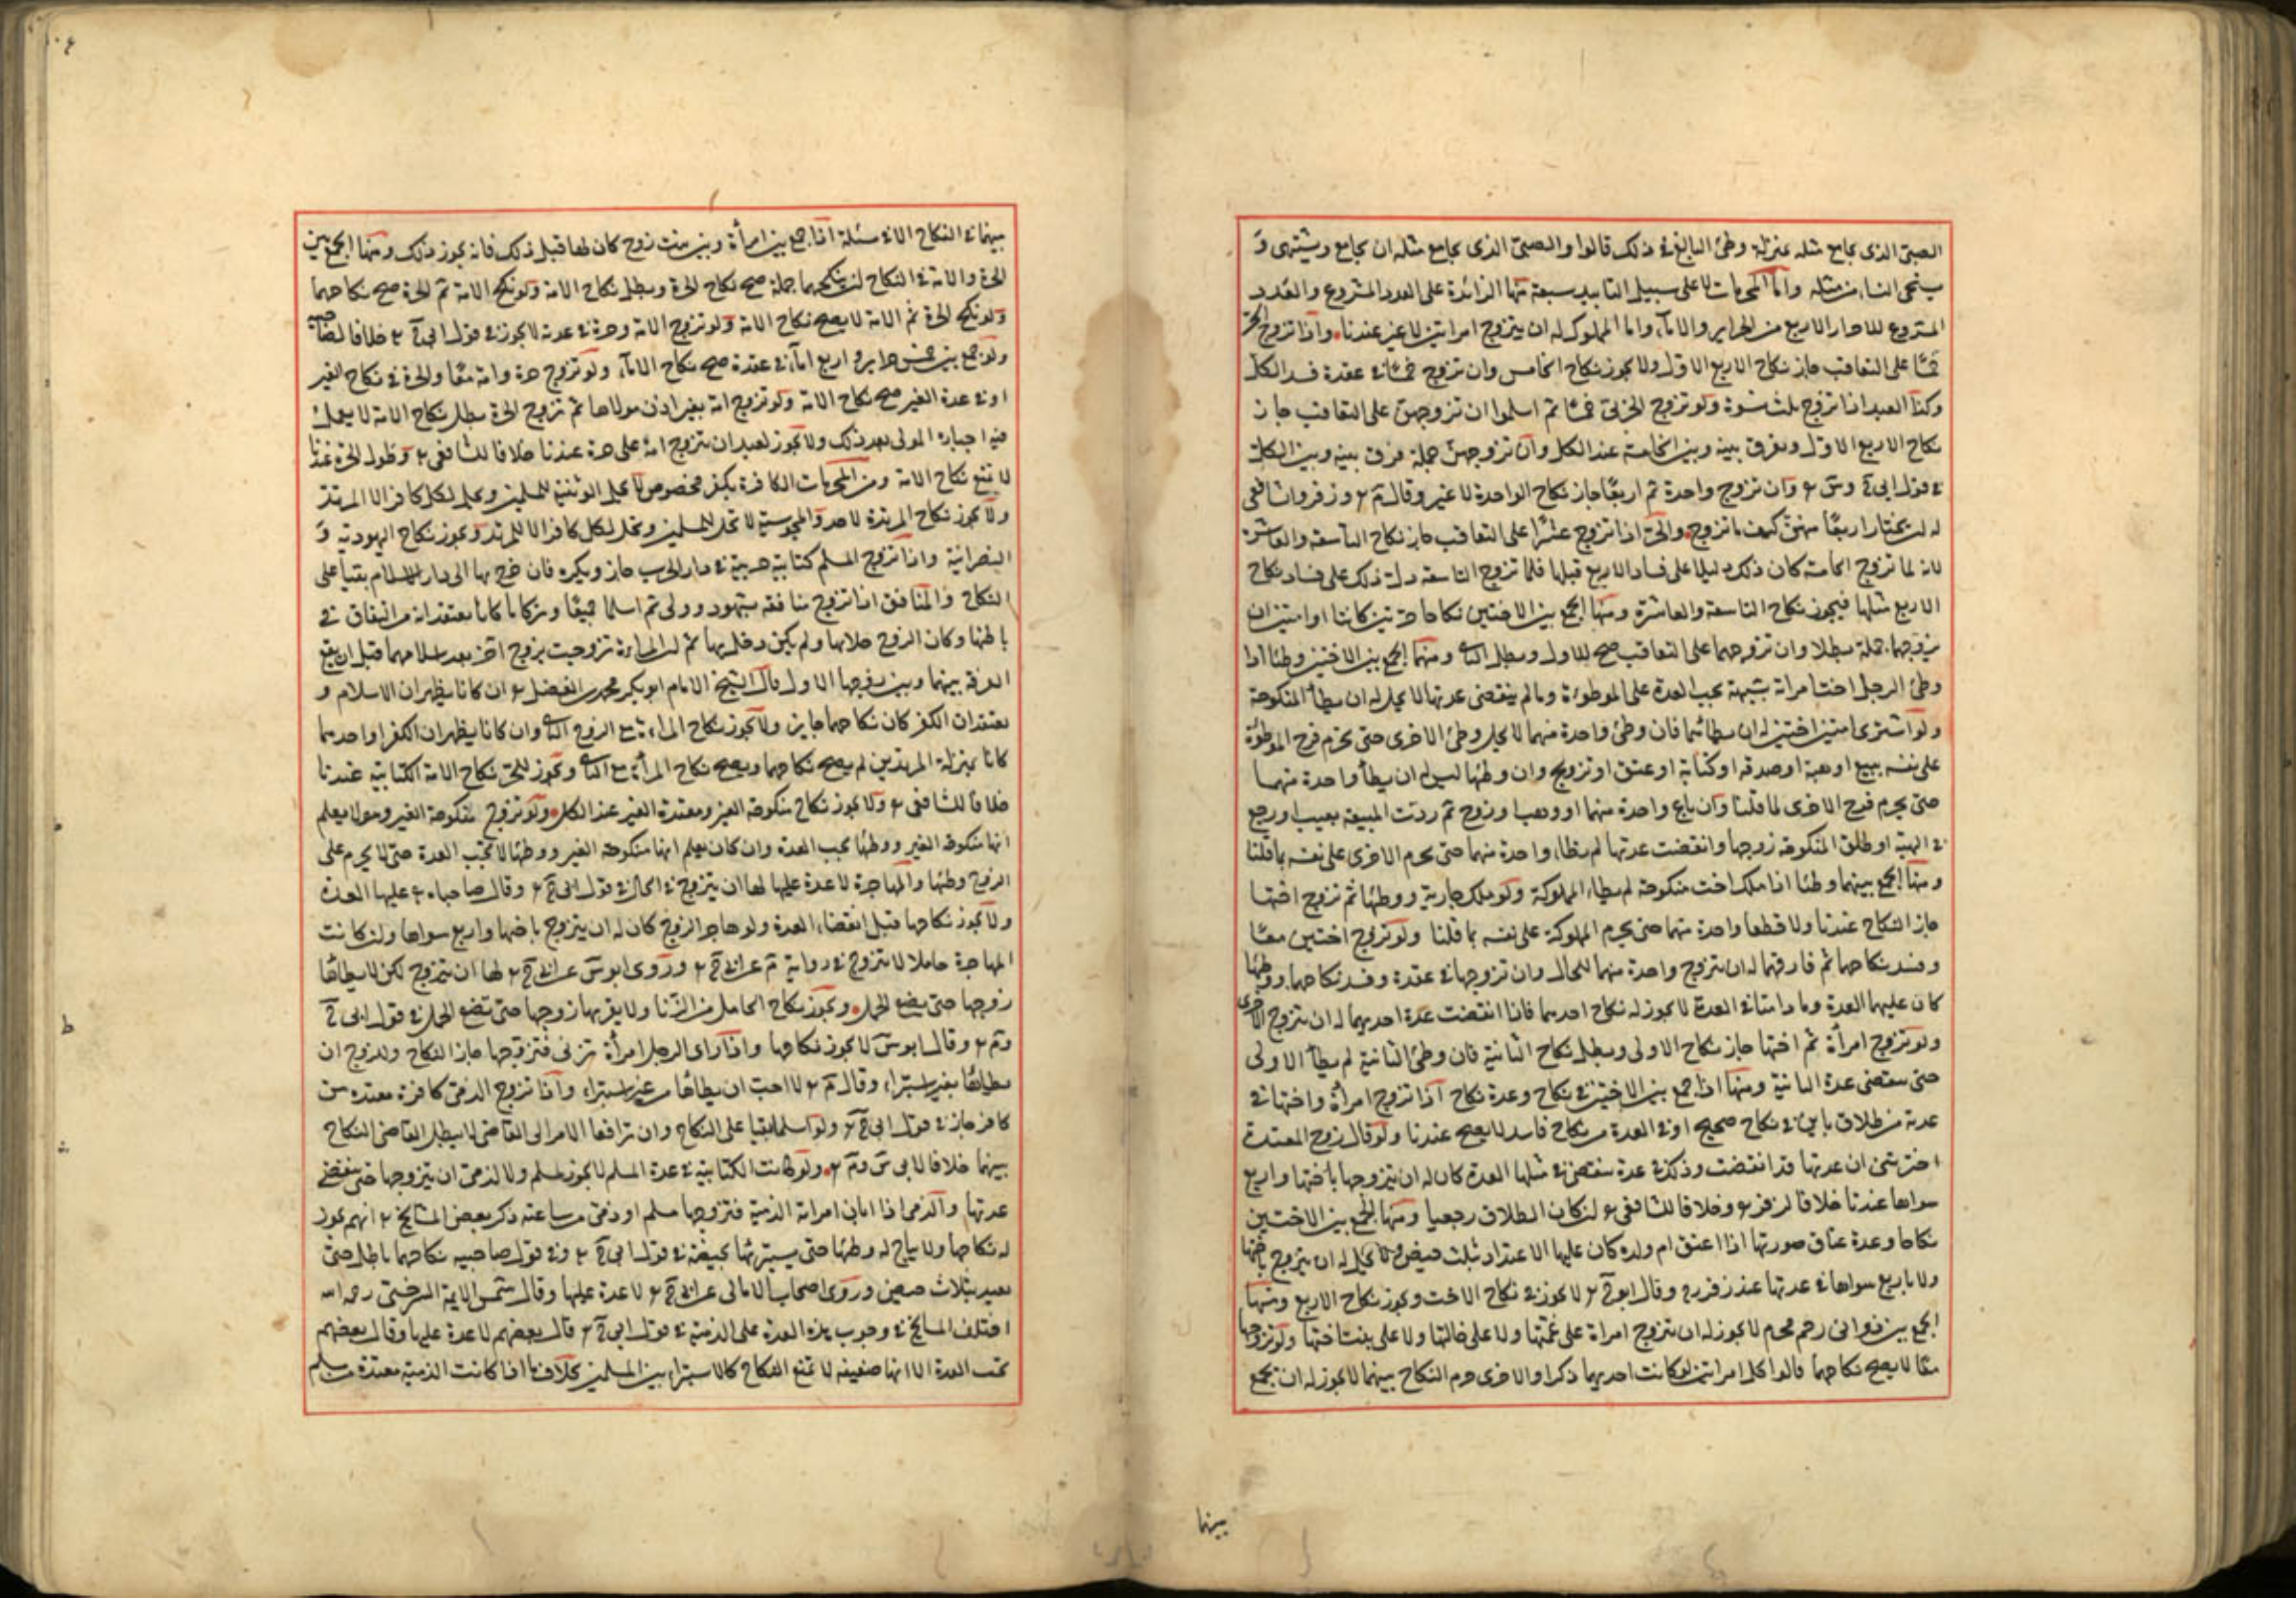 الصبى الذى يجامع مثله بمنزلة وطئ البالغ فى ذلك قالوا والصبى الذى يجامع مثله ان يجامع ويشتهى و
يستحى النساء من مثله واما المحرمات لا على سبيل التابيد سبعة منها الزائدة على العدد المشروع والعدد
المشروع للاحرار الاربع من الحراير والامآء واما المملوك له ان يتزوج امراتين لا غير عندنا واذا تزوج الحر
خمسا على التعاقب جاز نكاح الاربع الاول ولا يجوز نكاح الخامس وان تزوج خمسا فى عقدة فسد الكل
وكذا العبد اذا تزوج بثلث نسوة ولو تزوج الحربى خمسا ثم اسلموا ان تزوجهن على التعاقب جاز
نكاح الاربع الاول ويفرق بينه وبين الخامسة عند الكل وان تزوجهن جملة فرق بينه وبين الكل
فى قول ابى ح وس وان تزوج واحدة ثم اربعا جاز نكاح الواحدة لا غير وقال م وزفر والشافعى
له ان يختار اربعا منهن كيف ما تزوج والحر اذا تزوج عشرا على التعاقب جاز نكاح التاسعة والعاشرة
لانه لما تزوج الخامسة كان ذلك دليلا على فساد الاربع قبلها فلما تزوج التاسعة دل ذلك على فساد نكاح
الاربع مثلها فيجوز نكاح التاسعة والعاشرة ومنها الجمع بين الاختين نكاحا حرتين كانتا او امتين ان
تزوجهما جملة بطلا وان تزوجهما على التعاقب صح للاول وبطل الثانى ومنها الجمع بين الاختين وطئا اذا
وطئ الرجل اخت امراته بشبهة يجب العدة على الموطوءة وما لم ينقضى عدتها لا يحل له ان يطأ المنكوحة
ولو اشترى امتين اختين له ان يطأ ايهما فان وطئ واحدة منهما لا يحل وطئ الاخرى حتى يحرم فرج الموطوءة
على نفسه ببيع او هبة او صدقة او كتابة او عتق او تزويج وان وطئها ليس له ان يطأ واحدة منهما
حتى يحرم فرج الاخرى لما قلنا وان باع واحدة منهما او وهب او زوج ثم ردت المبيعة بعيب او رجع
فى الهبة او طلق المنكوحة زوجها وانقضت عدتها لم يطا واحدة منهما حتى يحرم الاخرى على نفسه بما قلنا
ومنها الجمع بينهما وطئا اذا ملك اخت منكوحة لم يطاء المملوكة ولو ملك جارية ووطئها ثم تزوج اختها
جاز النكاح عندنا ولا يطأ واحدة منهما حتى يحرم المملوكة على نفسه بما قلنا ولو تزوج اختين معا
وفسد نكاحهما ثم فارقهما له ان يتزوج واحدة منهما للحال وان تزوجها فى عقدة وفسد نكاحهما ووطئها
كان عليهما العدة وما دامتا فى العدة لا يجوز له نكاح احديهما فاذا انقضت عدة احديهما له ان يتزوج الاخرى
ولو تزوج امرأة ثم اختها جاز نكاح الاولى وبطل نكاح الثانية فان وطئ الثانية لم يطأ الاولى
حتى ينقضى عدة الثانية ومنها اذا جمع بين الاختين فى نكاح وعدة نكاح اذا تزوج امرأة واختها فى
عدته من طلاق باين فى نكاح صحيح او فى العدة من نكاح فاسد لا يصح عندنا ولو قال زوج المعتدة
اخبرتنى ان عدتها قد انقضت وذلك فى عدة ينقضى فى مثلها العدة كان له ان يتزوجها باختها واربع
سواها عندنا خلافا لزفر وخلافا للشافعى ان كان الطلاق رجعيا ومنها الجمع بين الاختين
نكاحا وعدة عتاق صورتها اذا اعتق ام ولده كان عليها الاعتداد بثلث حيض ولا يحل له ان يتزوج باختها
ولا باربع سواها فى عدتها عند زفر وقال ابو ح لا يجوز فى نكاح الاخت ويجوز نكاح الاربع ومنها
الجمع بين ذواتى رحم محرم لا يجوز له ان يتزوج امراة على عمتها ولا على خالتها ولا على بنت اختها ولو تزوجها
معا لا يصح نكاحهما قالوا كل امراتين لو كانت احديهما ذكرا والاخرى حرم النكاح بينهما لا يجوز له ان يجمع
بينهما
بينهما فى النكاح الا فى مسئلة اذا جمع بين امرأة وبين بنت زوج كان لها قبل ذلك فانه يجوز ذلك ومنها الجمع بين
الحرة والامة فى النكاح ان ينكحهما جملة صح نكاح الحرة وبطل نكاح الامة ولو نكح الامة ثم الحرة صح نكاحهما
ولو نكح الحرة ثم الامة لا يصح نكاح الامة ولو تزوج الامة وحرة فى عدته لا يجوز فى قول ابى ح خلافا لصاحبيه
ولو جمع بين خمس حراير واربع امآء فى عقدة صح نكاح الامآء ولو تزوج حرة وامة معا والحرة فى نكاح الغير
او فى عدة الغير صح نكاح الامة ولو تزوج امة بغير اذن مولاها ثم تزوج الحرة بطل نكاح الامة لا يعمل
فيه اجازة المولى بعد ذلك ولا يجوز لعبد ان يتزوج امة على حرة عندنا خلافا للشافعى وطول الحرة عندنا
لا يمنع نكاح الامة ومن المحرمات الكافرة بكفر مخصوص لا يحل الوثنية للمسلمين ويحل لكل كافر الا المرتد
ولا يجوز نكاح المرتدة لاحد والمجوسية لا تحل للمسلمين وتحل لكل كافر الا للمرتد ويجوز نكاح اليهودية و
النصرانية واذا تزوج المسلم كتابية حربية فى دار الحرب جاز ويكره فان خرج بها الى دار الاسلام بقيا على
النكاح والمنافق اذا تزوج منافقة بتهود وولى ثم اسلما جميعا وتزكايا كانا يعتقدانه من النفاق فى
باطنها وكان الزوج خلا بها ولم يكن دخل بها ثم ان المراة تزوجت بزوج اخر بعد اسلامهما قبل ان يقع
الفرقة بينهما وبين زوجها الاول قال الشيخ الامام ابو بكر محمد بن الفضل ان كانا يظهران الاسلام و
يعتقدان الكفر كان نكاحهما جايز ولا يجوز نكاح المراة مع الزوج الثانى وان كانا يظهران الكفر او احدهما
كانا بمنزلة المرتدين لم يصح نكاحهما ويصح نكاح المرأة مع الثانى ويجوز للحر نكاح الامة الكتابية عندنا
خلافا للشافعى ولا يجوز نكاح منكوحة الغير ومعتدة الغير عند الكل ولو تزوج منكوحة الغير وهو لا يعلم
انها منكوحة الغير ووطئها يجب العدة وان كان يعلم انها منكوحة الغير ووطئها لا تجب العدة حتى لا يحرم على
الزوج وطئها والمهاجرة لا عدة عليها لها ان يتزوج فى الحال فى قول ابى ح وقال صاحباه عليها العدة
ولا يجوز نكاحها قبل انقضاء العدة ولو هاجر الزوج كان له ان يتزوج باختها واربع سواها وان كانت
المهاجرة حاملا لا يتزوج فى رواية م عن ابى ح وروى ابو س عن ابى ح لها ان يتزوج لكن لا يطاها
زوجها حتى يضع الحمل ويجوز نكاح الحامل من الزنا ولا يقربها زوجها حتى تضع الحمل فى قول ابى ح
وم وقال ابو س لا يجوز نكاحها واذا راى الرجل امرأة تزنى فتزوجها جاز النكاح وللزوج ان
يطاها بغير استبراء وقال م لا احب ان يطاها من غير استبراء واذا تزوج الذمى كافرة معتدة من
كافر جاز فى قول ابى ح ولو اسلما بقيا على النكاح وان ترافعا الامر الى القاضى لا يبطل القاضى النكاح
بينهما خلافا لابى س وم ولو كانت الكتابية فى عدة المسلم لا يجوز لمسلم ولا لذمى ان يتزوجها حتى ينقضى
عدتها والذمى اذا ابان امراته الذمية فتزوجها مسلم او ذمى من ساعته ذكر بعض المشايخ انهم يجوز
له نكاحها ولا يباح له وطئها حتى يستبرئها بحيضة فى قول ابى ح وفى قول صاحبيه نكاحهما باطل حتى
يعتد بثلاث حيض وروى اصحاب الامالى عن ابى ح لا عدة عليها وقال شمس الايمة السرخسى رحمه الله
اختلف المشايخ فى وجوب هذه العدة على الذمية فى قول ابى ح قال بعضهم لا عدة عليها وقال بعضهم
تجب العدة الا انها ضعيفة لا تمنع النكاح كالاستبراء بين المسلمين بخلاف ما اذا كانت الذمية معتدة من مسلم